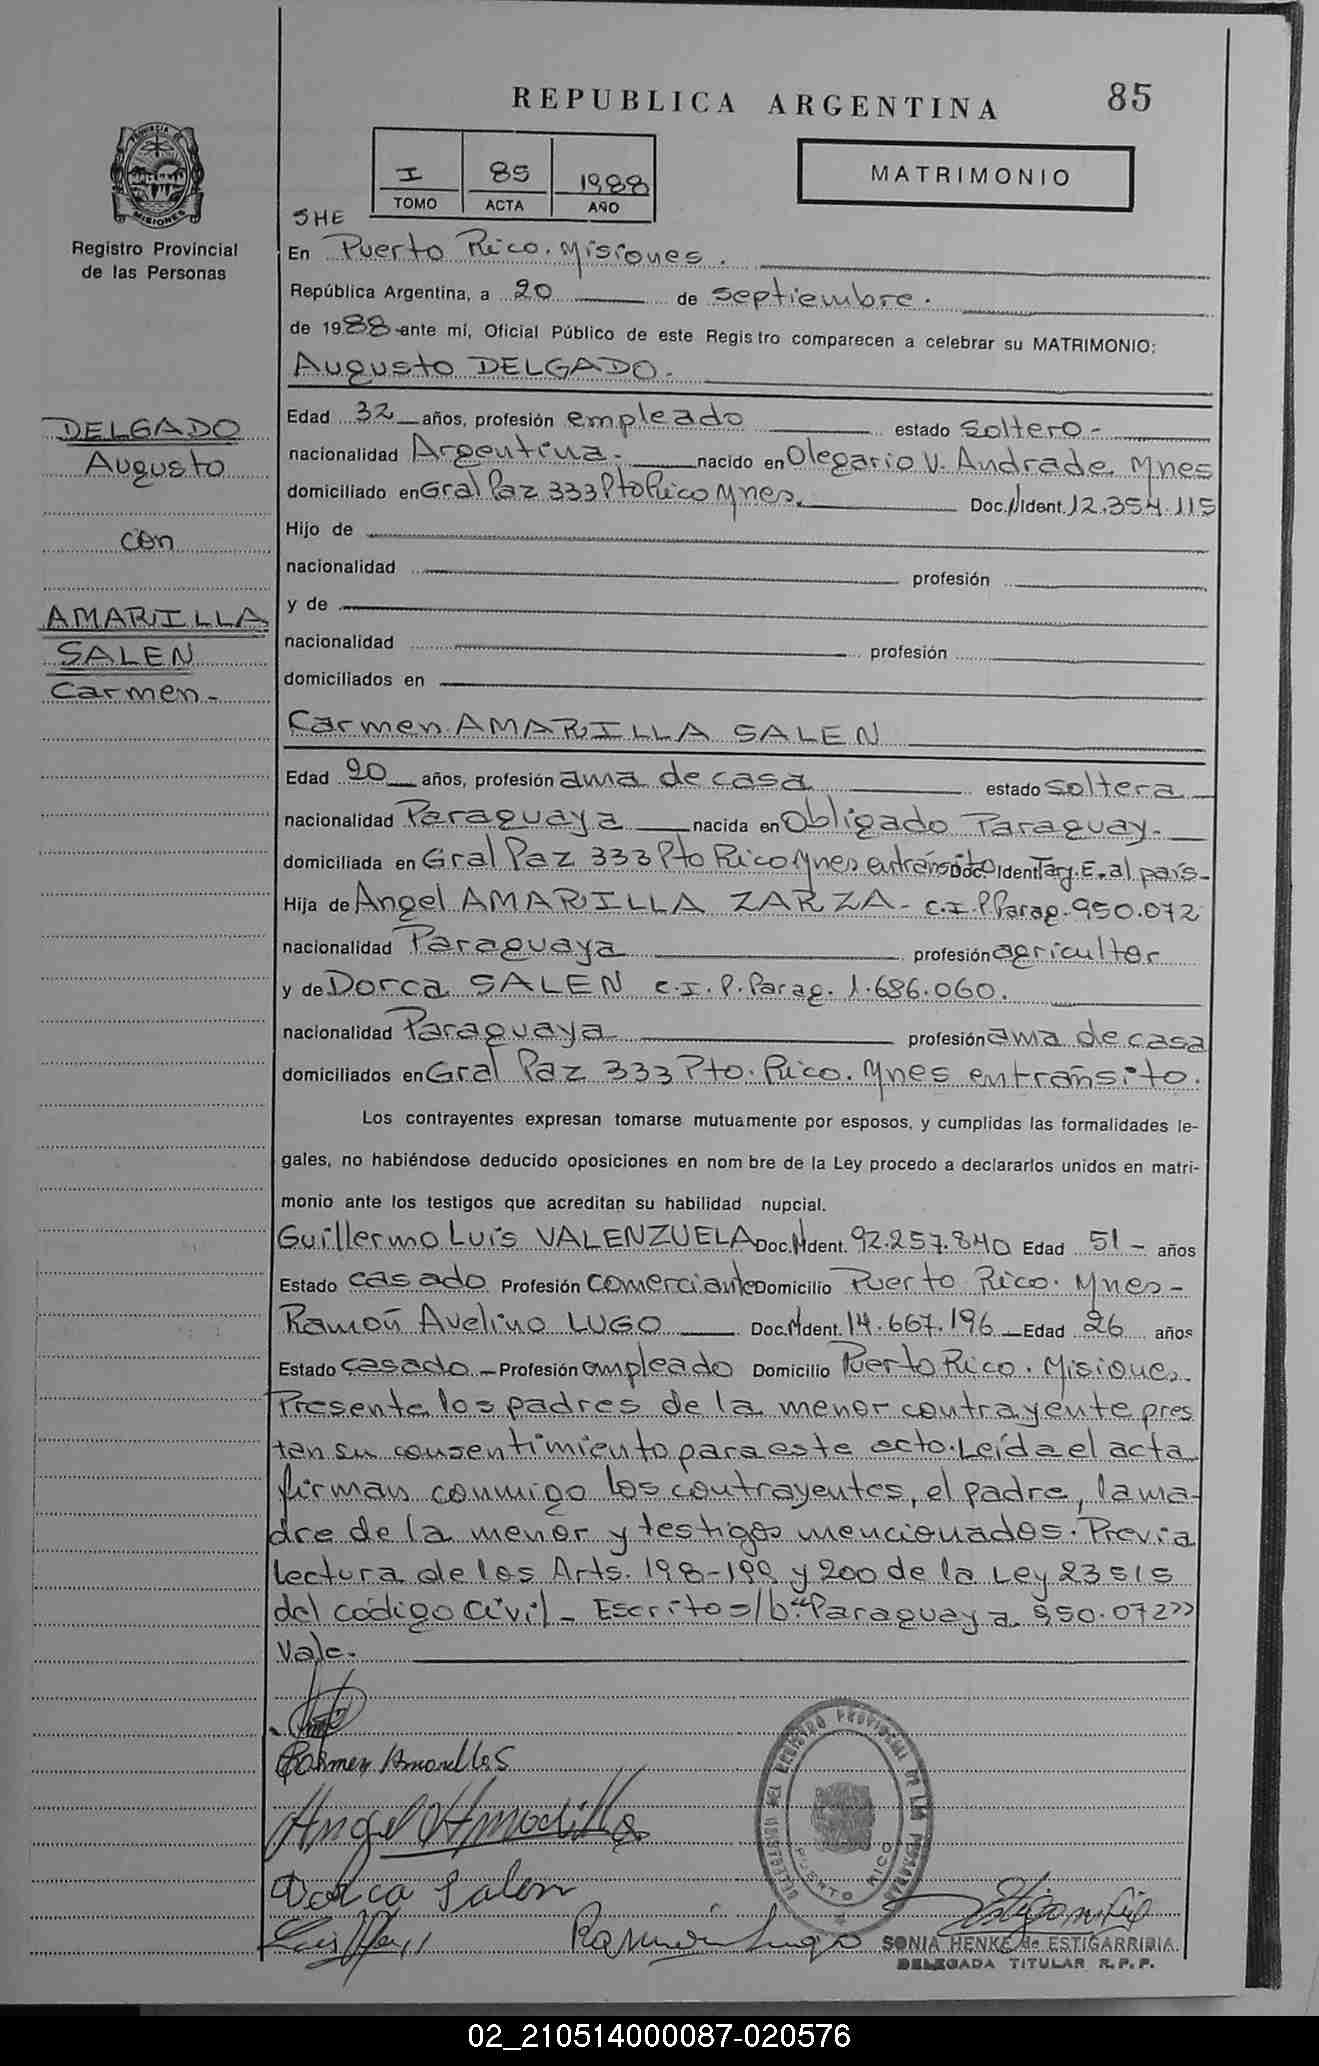 REPUBLICA ARGENTINA
85
PROVINCIA DE
MISIONES
Registro Provincial
de las Personas
I 85 1988
TOMO ACTA AÑO
MATRIMONIO
SHE
En Puerto Rico. Misiones.
República Argentina, a 20 de septiembre.
de 1988 ante mí, Oficial Público de este Registro comparecen a celebrar su MATRIMONIO:
Augusto DELGADO.
DELGADO
Augusto
con
AMARILLA
SALEN
Carmen-
Edad 32 años, profesión empleado estado soltero-
nacionalidad Argentina.- nacido en Olegario V. Andrade. Mnes
domiciliado en Gral Paz 333 Pto Rico Mnes. Doc. N Ident. 12.354.115
Hijo de
nacionalidad profesión
y de
nacionalidad profesión
domiciliados en
Carmen AMARILLA SALEN
Edad 20 años, profesión ama de casa estado soltera
nacionalidad Paraguaya nacida en Obligado Paraguay.-
domiciliada en Gral Paz 333 Pto Rico Mnes en tránsito Doc. Ident Tarj. E. al país-
Hija de Angel AMARILLA ZARZA- C.I.P. Parag. 950.072
nacionalidad Paraguaya profesión agricultor
y de Dorca SALEN C.I.P. Parag. 1.686.060.
nacionalidad Paraguaya profesión ama de casa
domiciliados en Gral Paz 333 Pto. Rico. Mnes en tránsito.
Los contrayentes expresan tomarse mutuamente por esposos, y cumplidas las formalidades le-
gales, no habiéndose deducido oposiciones en nom bre de la Ley procedo a declararlos unidos en matri-
monio ante los testigos que acreditan su habilidad nupcial.
Guillermo Luis VALENZUELA Doc. N Ident. 92.257.840 Edad 51- años
Estado casado Profesión comerciante Domicilio Puerto Rico. Mnes-
Ramón Avelino LUGO Doc. N Ident. 14.667.196 Edad 26 años
Estado casado- Profesión empleado Domicilio Puerto Rico. Misiones.
Presente los padres de la menor contrayente pres
tan su consentimiento para este acto. Leída el acta
firman conmigo los contrayentes, el padre, la ma-
dre de la menor y testigos mencionados. Previa
lectura de los Arts. 198-199 y 200 de la Ley 23515
del código Civil- Escrito s/b "Paraguaya. 950.072"
Vale.-
Carmen Amarilla S
Angel Amarilla
Dorca Salen
Ramón Lugo
DELEGACION DEL REGISTRO PROVINCIAL DE LAS PERSONAS
PUERTO RICO
SONIA HENKE de ESTIGARRIBIA
DELEGADA TITULAR R.P.P.
02_210514000087-020576